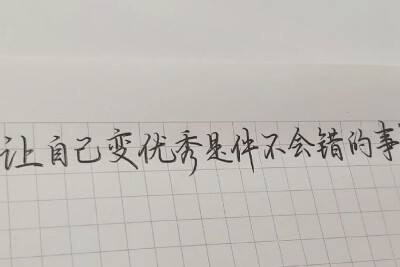 让自己变优秀是件不会错的事